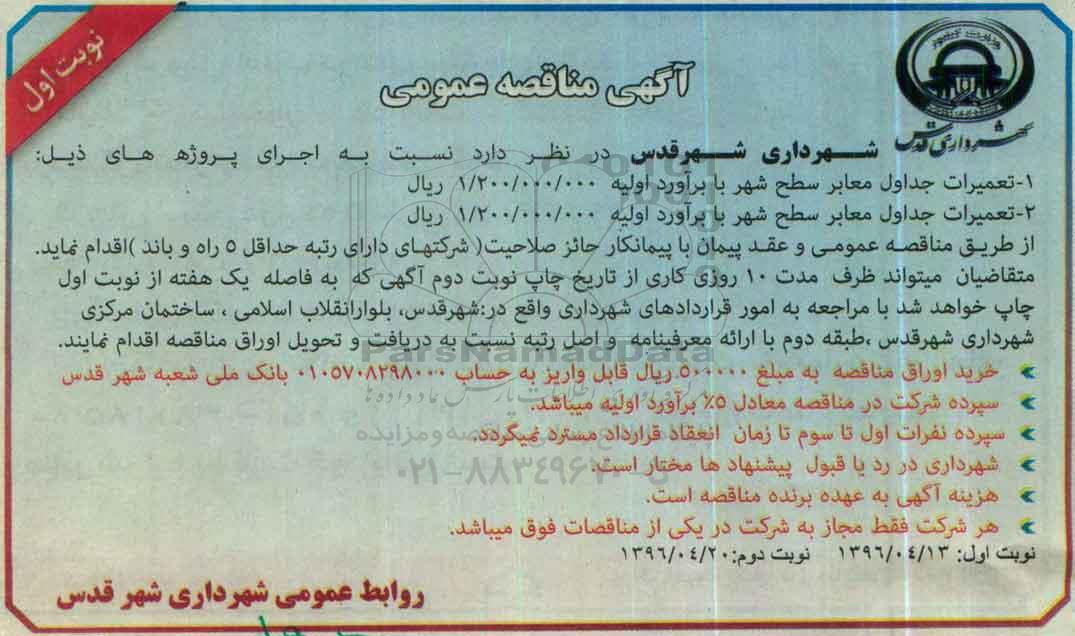 نوبت اول
وزارت کشور
شهرداری قدس
آگهی مناقصه عمومی
شهرداری شهرقدس در نظر دارد نسبت به اجرای پروژه های ذیل:
۱-تعمیرات جداول معابر سطح شهر با برآورد اولیه ۱/۲۰۰/۰۰۰/۰۰۰ ریال
۲-تعمیرات جداول معابر سطح شهر با برآورد اولیه ۱/۲۰۰/۰۰۰/۰۰۰ ریال
از طریق مناقصه عمومی و عقد پیمان با پیمانکار حائز صلاحیت( شرکتهای دارای رتبه حداقل ۵ راه و باند )اقدام نماید.
متقاضیان میتواند ظرف مدت ۱۰ روزی کاری از تاریخ چاپ نوبت دوم آگهی که به فاصله یک هفته از نوبت اول
چاپ خواهد شد با مراجعه به امور قراردادهای شهرداری واقع در:شهرقدس، بلوارانقلاب اسلامی ، ساختمان مرکزی
شهرداری شهرقدس ،طبقه دوم با ارائه معرفینامه و اصل رتبه نسبت به دریافت و تحویل اوراق مناقصه اقدام نمایند.
ParsNamadData
خرید اوراق مناقصه به مبلغ ۵۰۰۰۰۰ ریال قابل واریز به حساب ۰۱۰۵۷۰۸۲۹۸۰۰۰ بانک ملی شعبه شهر قدس
سپرده شرکت در مناقصه معادل ۵٪ برآورد اولیه میباشد.
سپرده نفرات اول تا سوم تا زمان انعقاد قرارداد مسترد نمیگردد.
شهرداری در رد یا قبول پیشنهاد ها مختار است.
۰۲۱-۸۸۳۴۹۶۷۰
هزینه آگهی به عهده برنده مناقصه است.
هر شرکت فقط مجاز به شرکت در یکی از مناقصات فوق میباشد.
نوبت اول: ۱۳۹۶/۰۴/۱۳ نوبت دوم:۱۳۹۶/۰۴/۲۰
روابط عمومی شهرداری شهر قدس